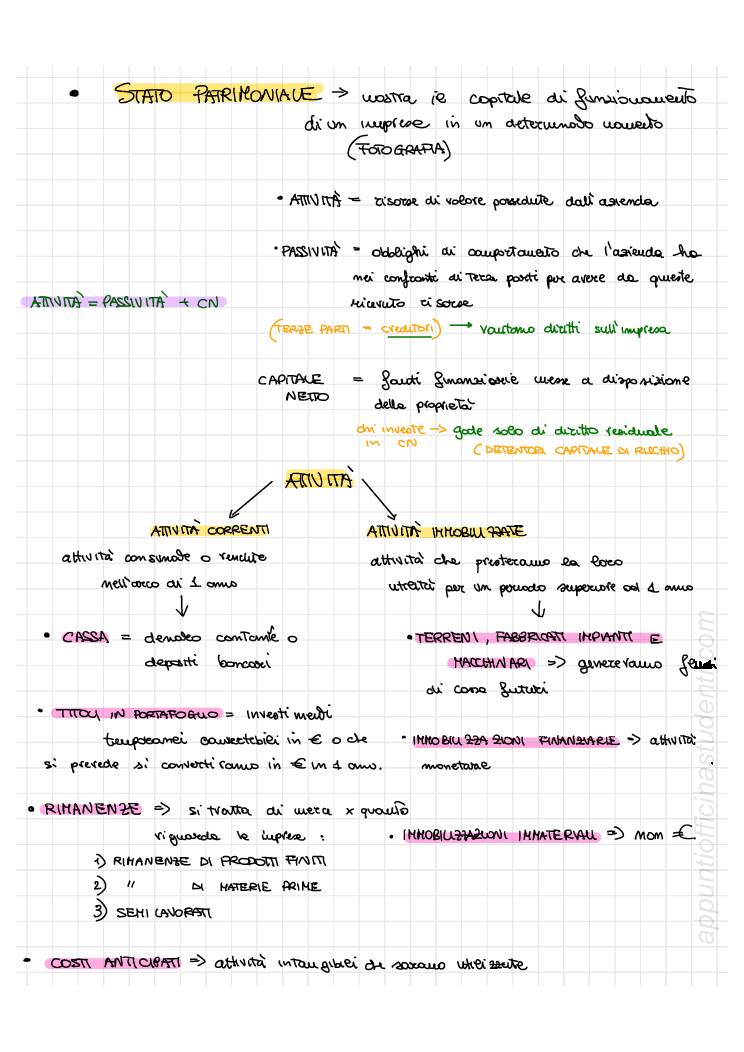 • STATO PATRIMONIALE → mostra il capitale di funzionamento
di un imprese in un determinato momento
(FOTOGRAFIA)
• ATTIVITÀ = risorse di valore possedute dall'azienda
• PASSIVITÀ = obblighi di comportamento che l'azienda ha
nei confronti di terze parti per avere da queste
ATTIVITÀ = PASSIVITÀ + CN
ricevuto risorse
(TERZE PARTI = creditori) → vantano diritti sull'impresa
CAPITALE NETTO = fonti finanziarie messe a disposizione
della proprietà
chi investe in CN → gode solo di diritto residuale
(DETENTORI CAPITALE DI RISCHIO)
ATTIVITÀ
ATTIVITÀ CORRENTI
attività consumate o vendute
nell'arco di 1 anno
↓
• CASSA = denaro contante o
depositi bancari
• TITOLI IN PORTAFOGLIO = investimenti
temporanei convertibili in € o che
si prevede si convertiranno in € in 1 anno.
• RIMANENZE => si tratta di merce x quanto
riguarda le imprese :
1) RIMANENZE DI PRODOTTI FINITI
2) " DI MATERIE PRIME
3) SEMILAVORATI
• COSTI ANTICIPATI => attività intangibili che saranno utilizzate
ATTIVITÀ IMMOBILIZZATE
attività che presteranno la loro
utilità per un periodo superiore ad 1 anno
↓
• TERRENI, FABBRICATI IMPIANTI E
MACCHINARI => genereranno flussi
di cassa futuri
• IMMOBILIZZAZIONI FINANZIARIE => attività
monetarie
• IMMOBILIZZAZIONI IMMATERIALI => non =€
appuntiofficina.studenti.com